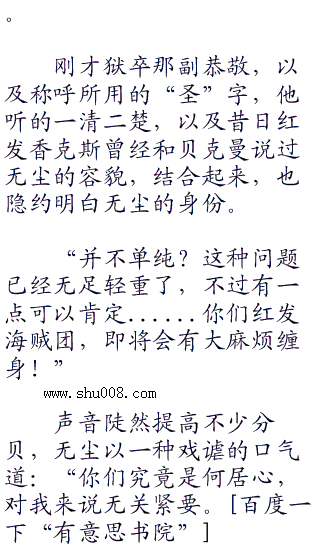 。
刚才狱卒那副恭敬，以
及称呼所用的“圣”字，他
听的一清二楚，以及昔日红
发香克斯曾经和贝克曼说过
无尘的容貌，结合起来，也
隐约明白无尘的身份。
“并不单纯？这种问题
已经无足轻重了，不过有一
点可以肯定......你们红发
海贼团，即将会有大麻烦缠
身！”
www.shu008.com
声音陡然提高不少分
贝，无尘以一种戏谑的口气
道：“你们究竟是何居心，
对我来说无关紧要。[百度一
下“有意思书院”]